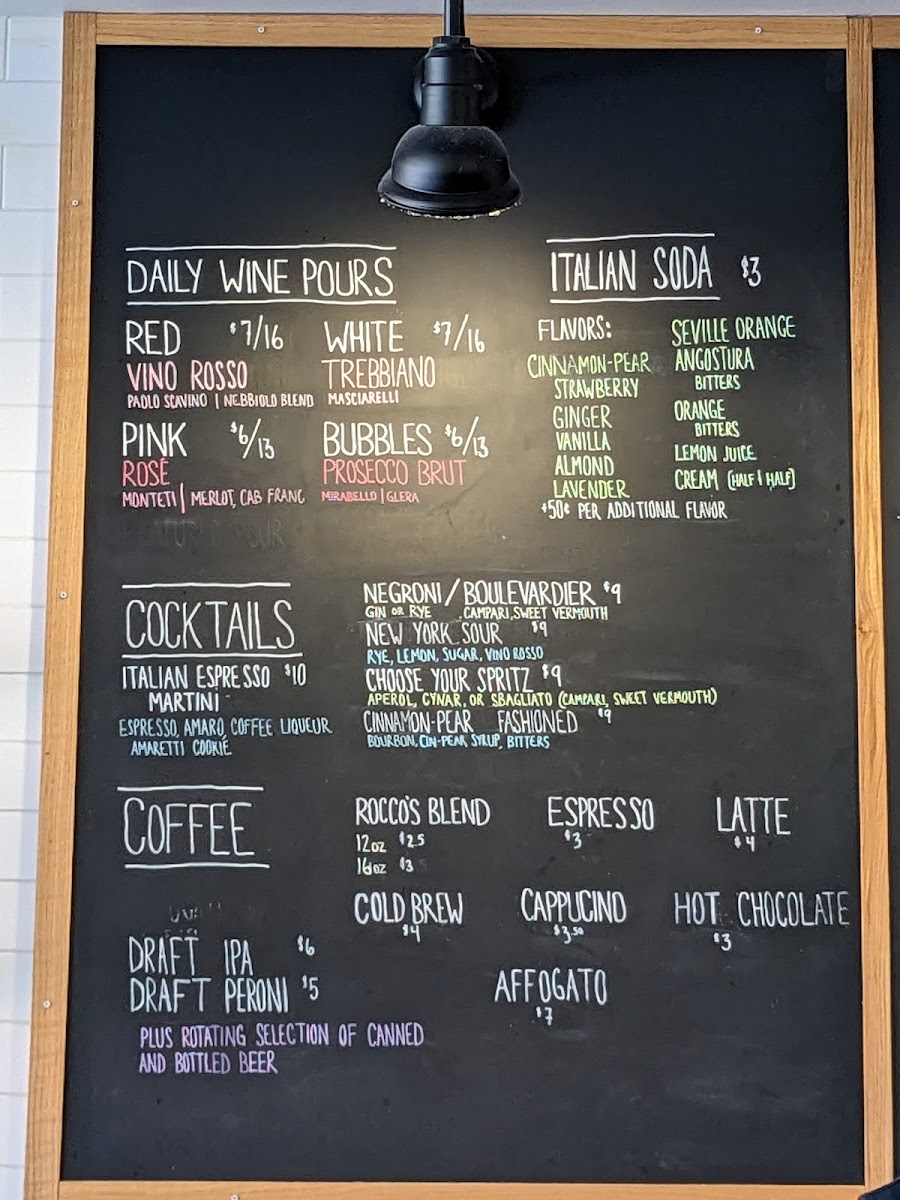 DAILY WINE POURS
RED $7/16
VINO ROSSO
PAOLO SCAVINO | NEBBIOLO BLEND
WHITE $7/16
TREBBIANO
MASCIARELLI
PINK $6/13
ROSÉ
MONTETI | MERLOT, CAB FRANC
BUBBLES $6/13
PROSECCO BRUT
MIRABELLO | GLERA
ITALIAN SODA $3
FLAVORS:
CINNAMON-PEAR
STRAWBERRY
GINGER
VANILLA
ALMOND
LAVENDER
SEVILLE ORANGE
ANGOSTURA
BITTERS
ORANGE
BITTERS
LEMON JUICE
CREAM (HALF & HALF)
+50¢ PER ADDITIONAL FLAVOR
COCKTAILS
ITALIAN ESPRESSO $10
MARTINI
ESPRESSO, AMARO, COFFEE LIQUEUR
AMARETTI COOKIE
NEGRONI/BOULEVARDIER $9
GIN OR RYE, CAMPARI, SWEET VERMOUTH
NEW YORK SOUR $9
RYE, LEMON, SUGAR, VINO ROSSO
CHOOSE YOUR SPRITZ $9
APEROL, CYNAR, OR SBAGLIATO (CAMPARI, SWEET VERMOUTH)
CINNAMON-PEAR FASHIONED $9
BOURBON, CIN-PEAR SYRUP, BITTERS
COFFEE
ROCCO'S BLEND
12oz $2.5
16oz $3
ESPRESSO
$3
LATTE
$4
COLD BREW
$4
CAPPUCINO
$3.50
HOT CHOCOLATE
$3
AFFOGATO
$7
DRAFT IPA $6
DRAFT PERONI $5
PLUS ROTATING SELECTION OF CANNED
AND BOTTLED BEER